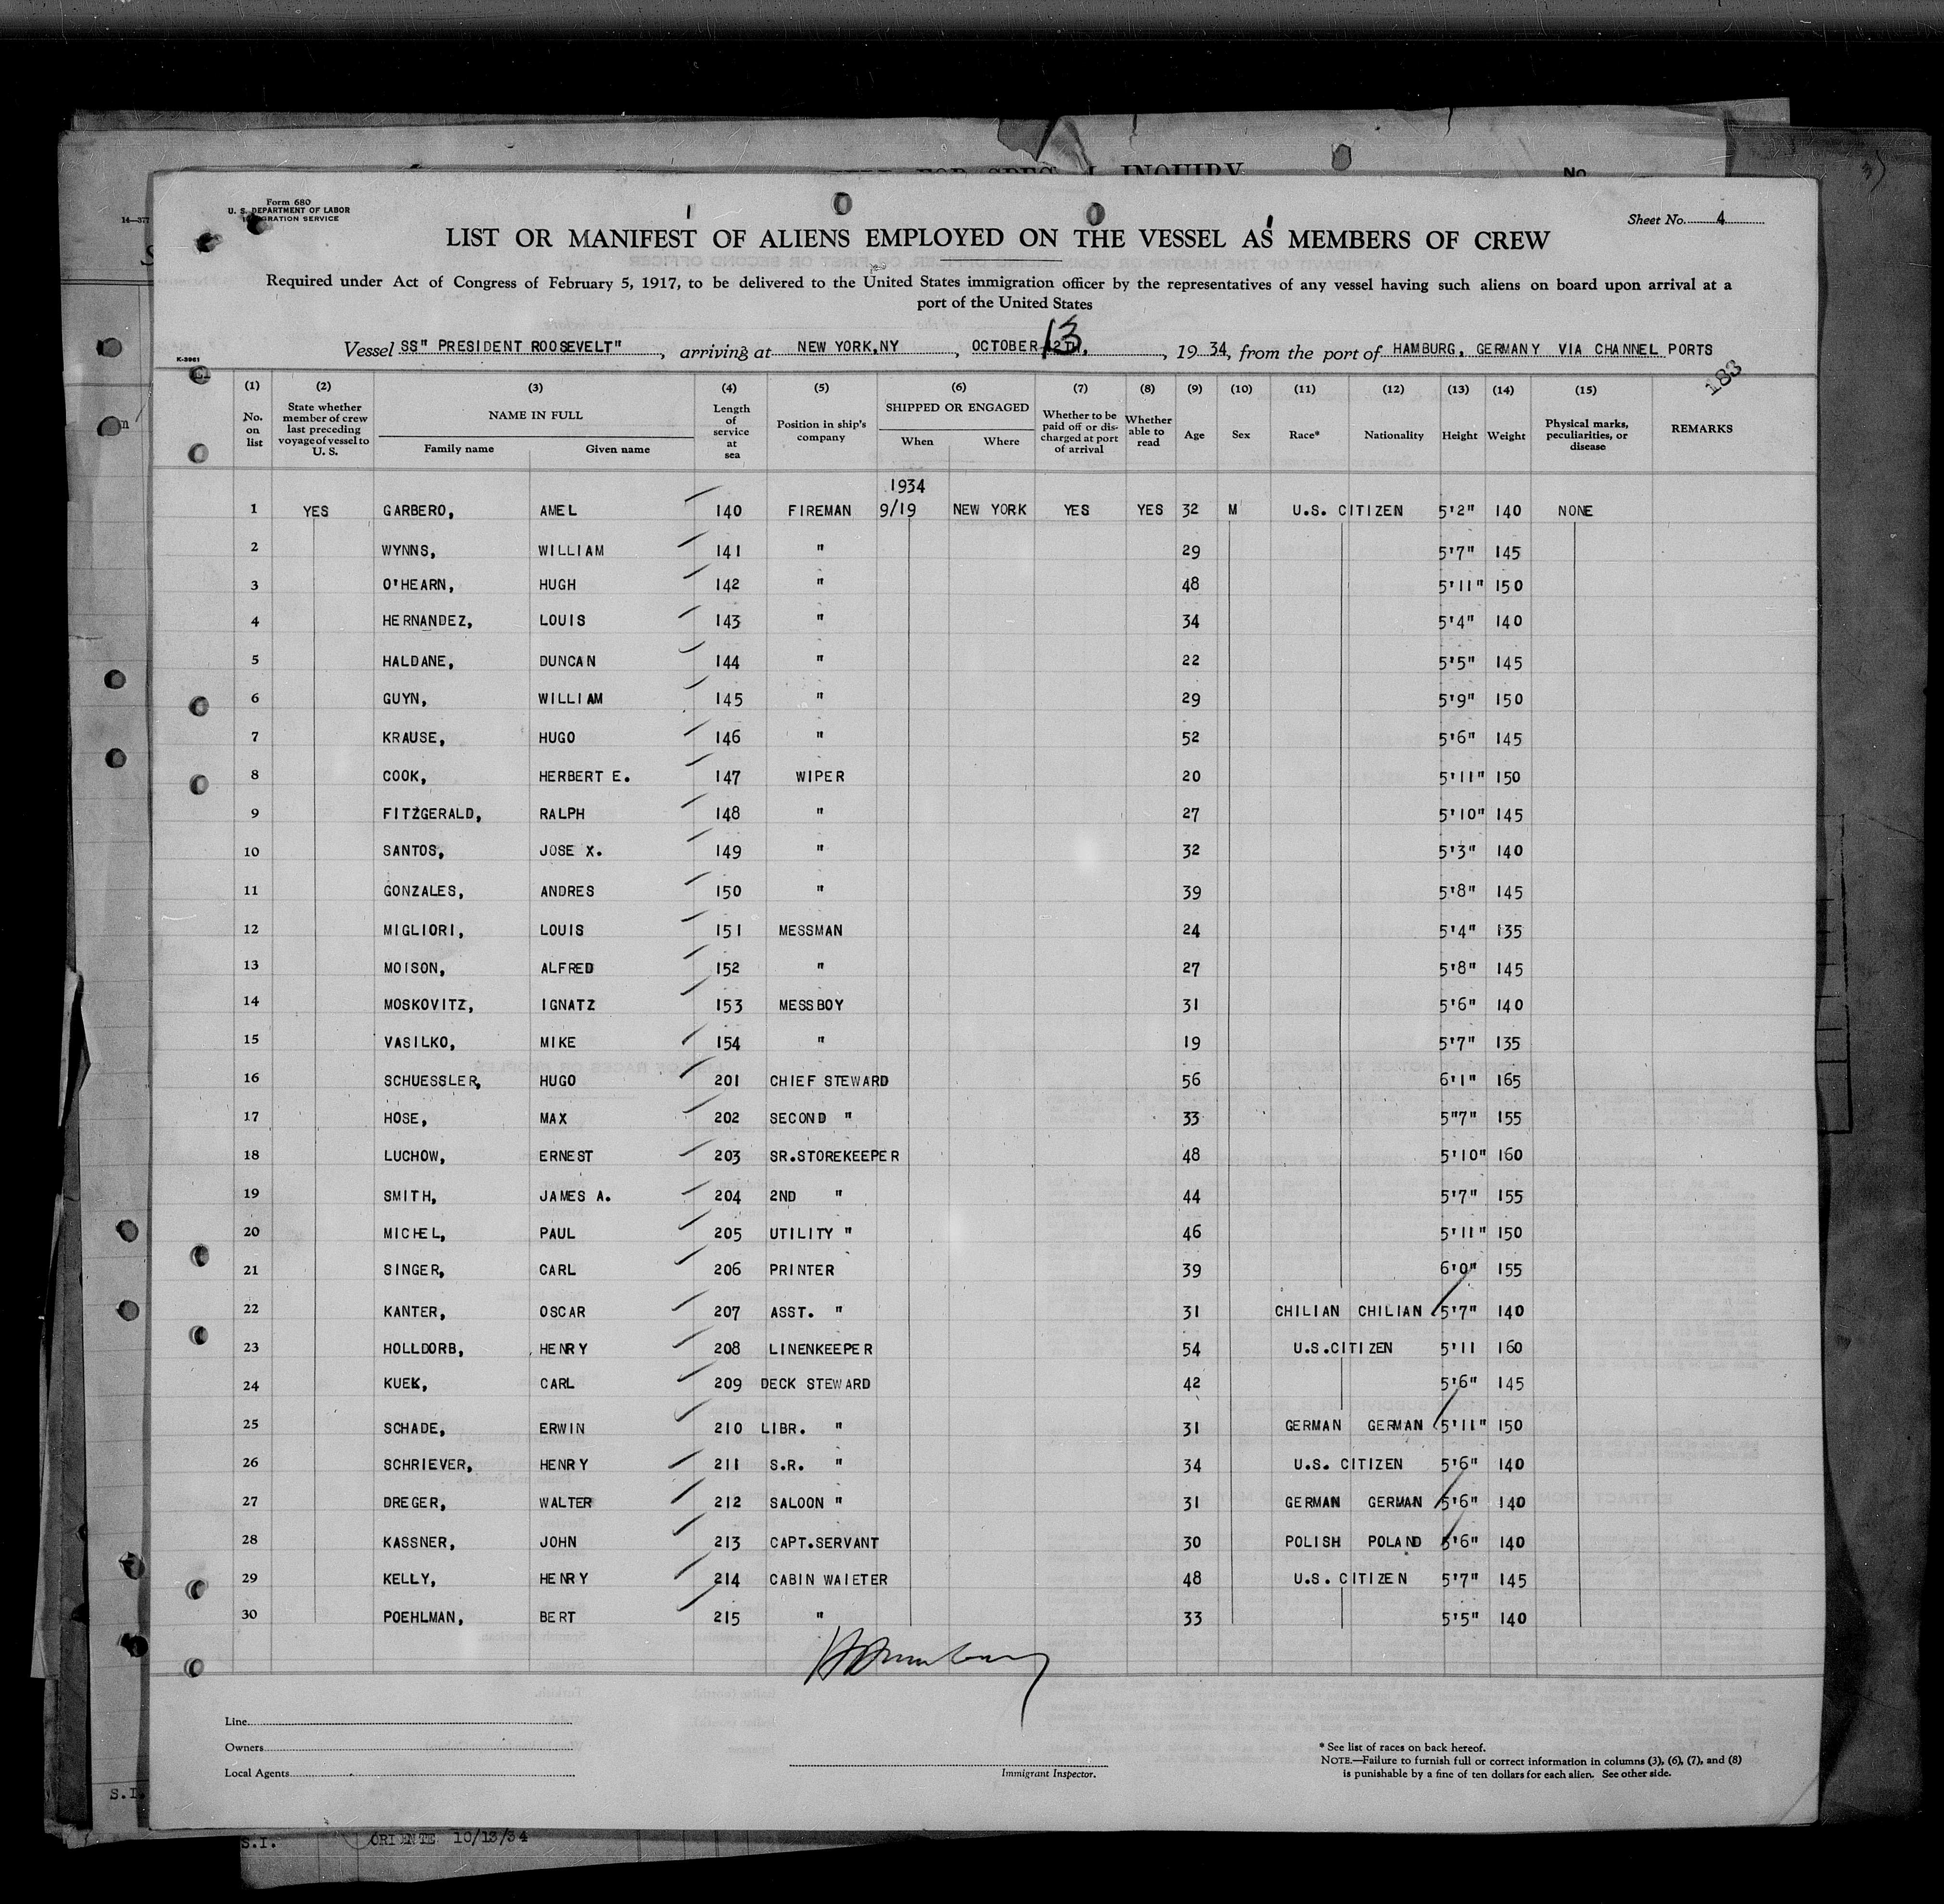 FOR SPEC L INQUIRY
No.
14—377
Form 680
U. S. DEPARTMENT OF LABOR
IMMIGRATION SERVICE
Sheet No. 4
LIST OR MANIFEST OF ALIENS EMPLOYED ON THE VESSEL AS MEMBERS OF CREW
Required under Act of Congress of February 5, 1917, to be delivered to the United States immigration officer by the representatives of any vessel having such aliens on board upon arrival at a
port of the United States
Vessel SS" PRESIDENT ROOSEVELT", arriving at NEW YORK,NY, OCTOBER 12TH, 13, 19 34, from the port of HAMBURG, GERMANY VIA CHANNEL PORTS
K-3961
183
(1) (2) (3) (4) (5) (6) (7) (8) (9) (10) (11) (12) (13) (14) (15)
No. on list | State whether member of crew last preceding voyage of vessel to U. S. | NAME IN FULL Family name Given name | Length of service at sea | Position in ship's company | SHIPPED OR ENGAGED When Where | Whether to be paid off or discharged at port of arrival | Whether able to read | Age | Sex | Race* | Nationality | Height | Weight | Physical marks, peculiarities, or disease | REMARKS
1934
1 YES GARBERO, AMEL 140 FIREMAN 9/19 NEW YORK YES YES 32 M U.S. CITIZEN 5'2" 140 NONE
2 WYNNS, WILLIAM 141 " 29 5'7" 145
3 O'HEARN, HUGH 142 " 48 5'11" 150
4 HERNANDEZ, LOUIS 143 " 34 5'4" 140
5 HALDANE, DUNCAN 144 " 22 5'5" 145
6 GUYN, WILLIAM 145 " 29 5'9" 150
7 KRAUSE, HUGO 146 " 52 5'6" 145
8 COOK, HERBERT E. 147 WIPER 20 5'11" 150
9 FITZGERALD, RALPH 148 " 27 5'10" 145
10 SANTOS, JOSE X. 149 " 32 5'3" 140
11 GONZALES, ANDRES 150 " 39 5'8" 145
12 MIGLIORI, LOUIS 151 MESSMAN 24 5'4" 135
13 MOISON, ALFRED 152 " 27 5'8" 145
14 MOSKOVITZ, IGNATZ 153 MESSBOY 31 5'6" 140
15 VASILKO, MIKE 154 " 19 5'7" 135
16 SCHUESSLER, HUGO 201 CHIEF STEWARD 56 6'1" 165
17 HOSE, MAX 202 SECOND " 33 5"7" 155
18 LUCHOW, ERNEST 203 SR.STOREKEEPER 48 5'10" 160
19 SMITH, JAMES A. 204 2ND " 44 5'7" 155
20 MICHEL, PAUL 205 UTILITY " 46 5'11" 150
21 SINGER, CARL 206 PRINTER 39 6'0" 155
22 KANTER, OSCAR 207 ASST. " 31 CHILIAN CHILIAN 5'7" 140
23 HOLLDORB, HENRY 208 LINENKEEPER 54 U.S.CITIZEN 5'11 160
24 KUEK, CARL 209 DECK STEWARD 42 5'6" 145
25 SCHADE, ERWIN 210 LIBR. " 31 GERMAN GERMAN 5'11" 150
26 SCHRIEVER, HENRY 211 S.R. " 34 U.S. CITIZEN 5'6" 140
27 DREGER, WALTER 212 SALOON " 31 GERMAN GERMAN 5'6" 140
28 KASSNER, JOHN 213 CAPT.SERVANT 30 POLISH POLAND 5'6" 140
29 KELLY, HENRY 214 CABIN WAIETER 48 U.S. CITIZEN 5'7" 145
30 POEHLMAN, BERT 215 " 33 5'5" 140
Line
Owners
Local Agents
Immigrant Inspector.
* See list of races on back hereof.
NOTE.—Failure to furnish full or correct information in columns (3), (6), (7), and (8)
is punishable by a fine of ten dollars for each alien. See other side.
S.I.
S.I. ORIENTE 10/13/34